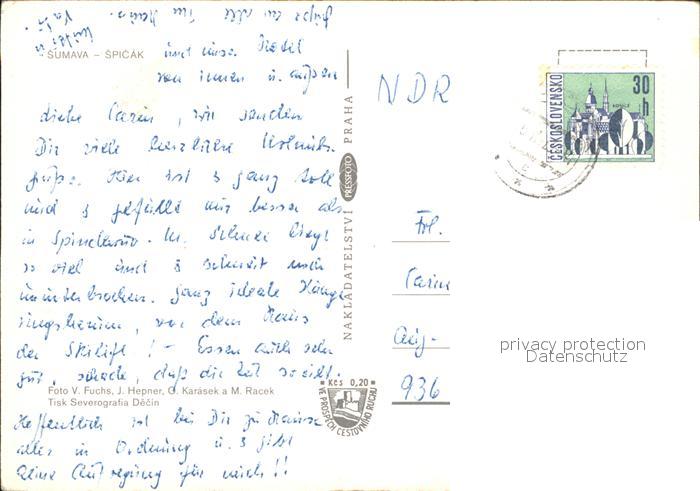 ŠUMAVA – ŠPIČÁK
Liebe Carin, wir senden
Dir viele herzliche Urlaubs-
grüße. Hier ist es ganz toll
und gefällt mir besser als
in Spindlermühle. Schnee liegt
so viel und schneit noch
ununterbrochen. Ganz ideale Hänge
vor dem Haus
der Skilift! – Essen auch sehr
gut, schade, daß die Zeit so eilt.
Hoffentlich ist bei Dir zu Hause
alles in Ordnung u. gibt
keine Aufregung für mich!!
und unser Hotel
von innen u. außen
Grüße an alle im Haus.
Foto V. Fuchs, J. Hepner, O. Karásek a M. Racek
Tisk Severografia Děčín
NAKLADATELSTVÍ PRESSFOTO PRAHA
Kčs 0,20
VE PROSPĚCH CESTOVNÍHO RUCHU
NDR
ČESKOSLOVENSKO
30
h
KOŠICE
Frl.
Carin
Aug.-
936
privacy protection
Datenschutz